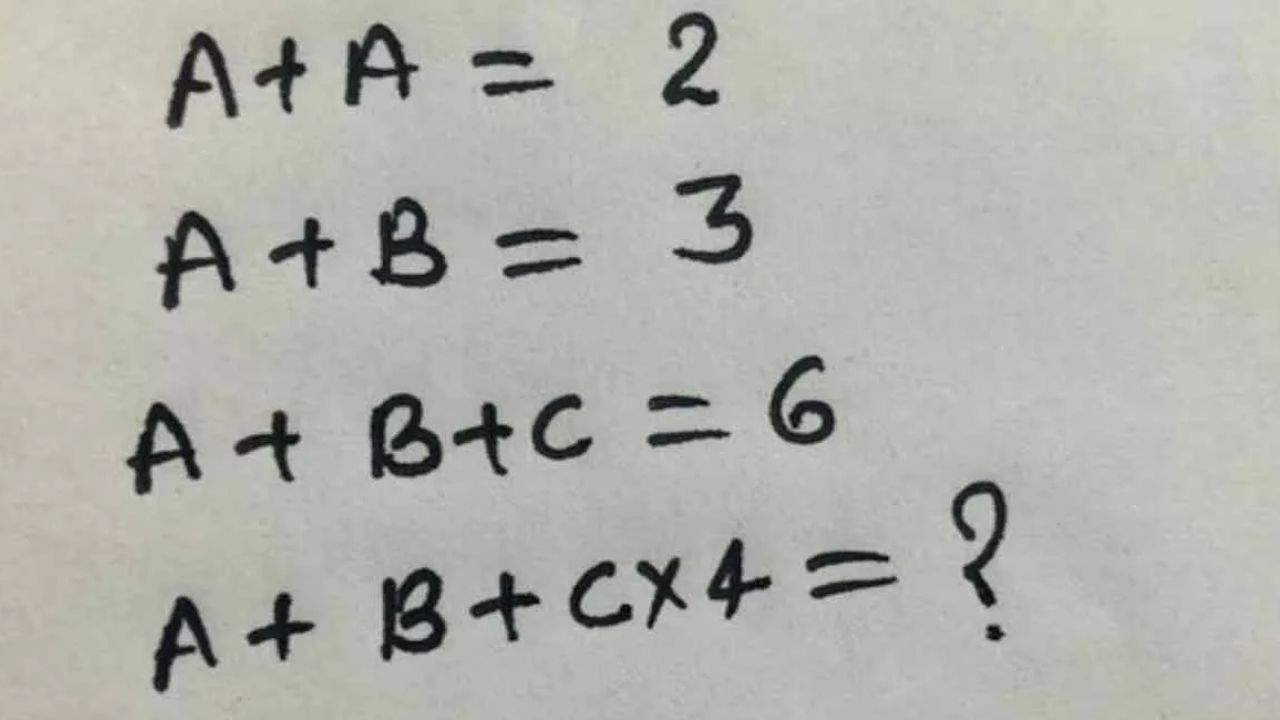 A+A = 2
A+B = 3
A+B+C = 6
A+B+C×4 = ?